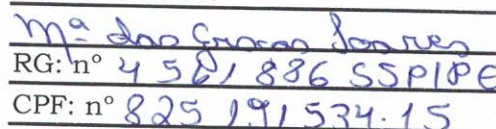 Mª das Graças Soares
RG: nº 4581886 SSP/PE
CPF: nº 825 191 534-15